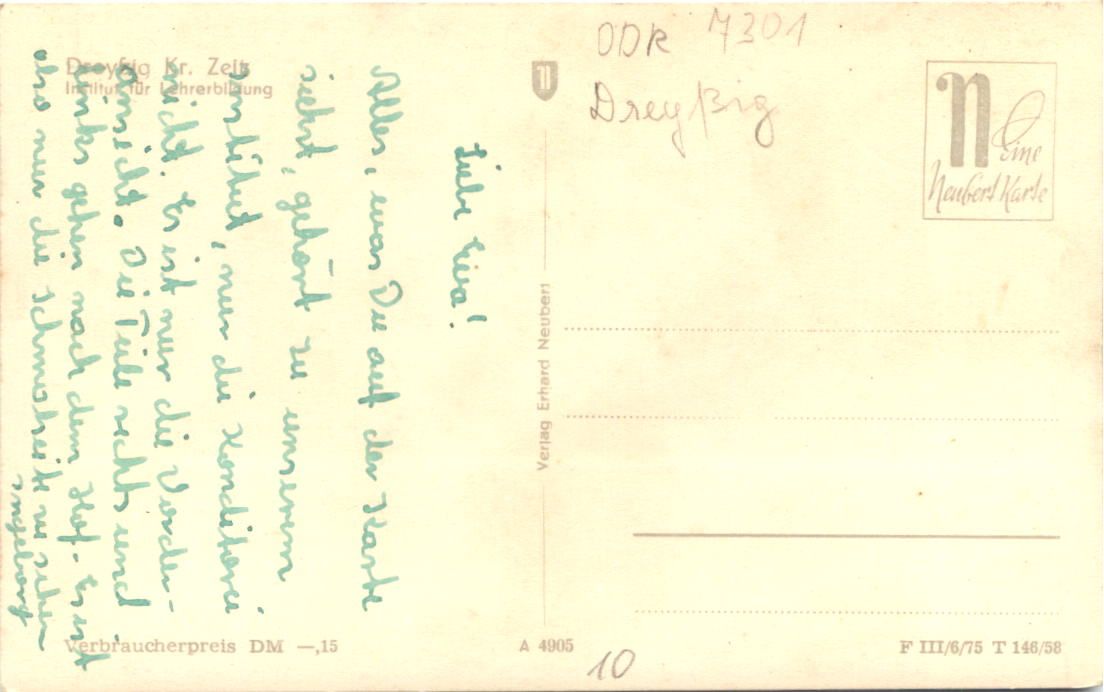 Dreyßig Kr. Zeitz
Institut für Lehrerbildung
Liebe Eva!
Alles, was Du auf der Karte
siehst, gehört zu unserem
Institut, nur die Konditorei
nicht. Es ist nur die Vorder-
ansicht. Die Teile rechts und
links gehen nach dem Hof. Es ist
also nur die Schmalseite zu sehen
Ingeborg
Verbraucherpreis DM —,15
Verlag Erhard Neubert
A 4905
10
DDR 7301
Dreyßig
Eine
Neubert Karte
F III/6/75 T 146/58